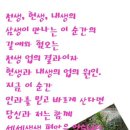 전생, 현생, 내생의
삼생이 만나는 이 순간의
갈애와 혐오는
전생 업의 결과이자
현생과 내생의 업의 원인.
지금 이 순간
인과를 믿고 바르게 산다면
당신과 저는 함께
세세생생